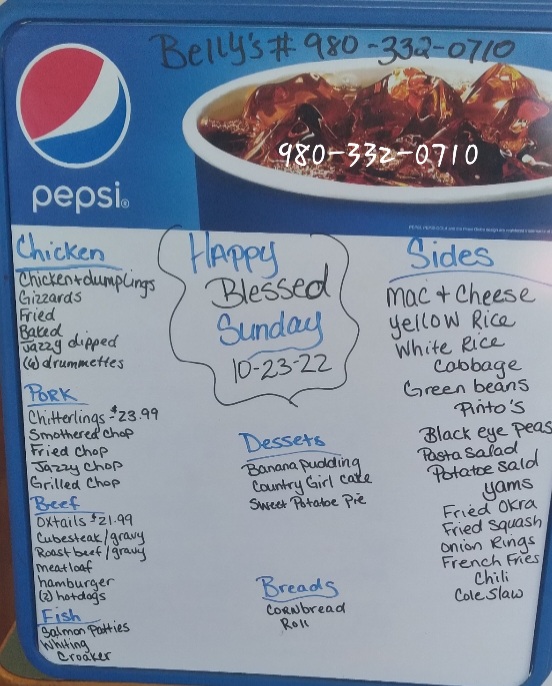 Belly's # 980-332-0710
980-332-0710
pepsi®
Chicken
Chicken+dumplings
Gizzards
Fried
Baked
Jazzy dipped
(4) drummettes
Pork
Chitterlings $23.99
Smothered Chop
Fried Chop
Jazzy Chop
Grilled Chop
Beef
Oxtails $21.99
Cubesteak/gravy
Roast beef/gravy
meatloaf
hamburger
(2) hotdogs
Fish
Salmon Patties
Whiting
Croaker
HAPPY
Blessed
Sunday
10-23-22
Dessets
Banana pudding
Country Girl cake
Sweet Potatoe Pie
Breads
Cornbread
Roll
Sides
Mac + Cheese
Yellow Rice
White Rice
Cabbage
Green beans
Pinto's
Black eye peas
Pasta Salad
Potatoe Salad
yams
Fried Okra
Fried Squash
Onion Rings
French Fries
Chili
Cole Slaw